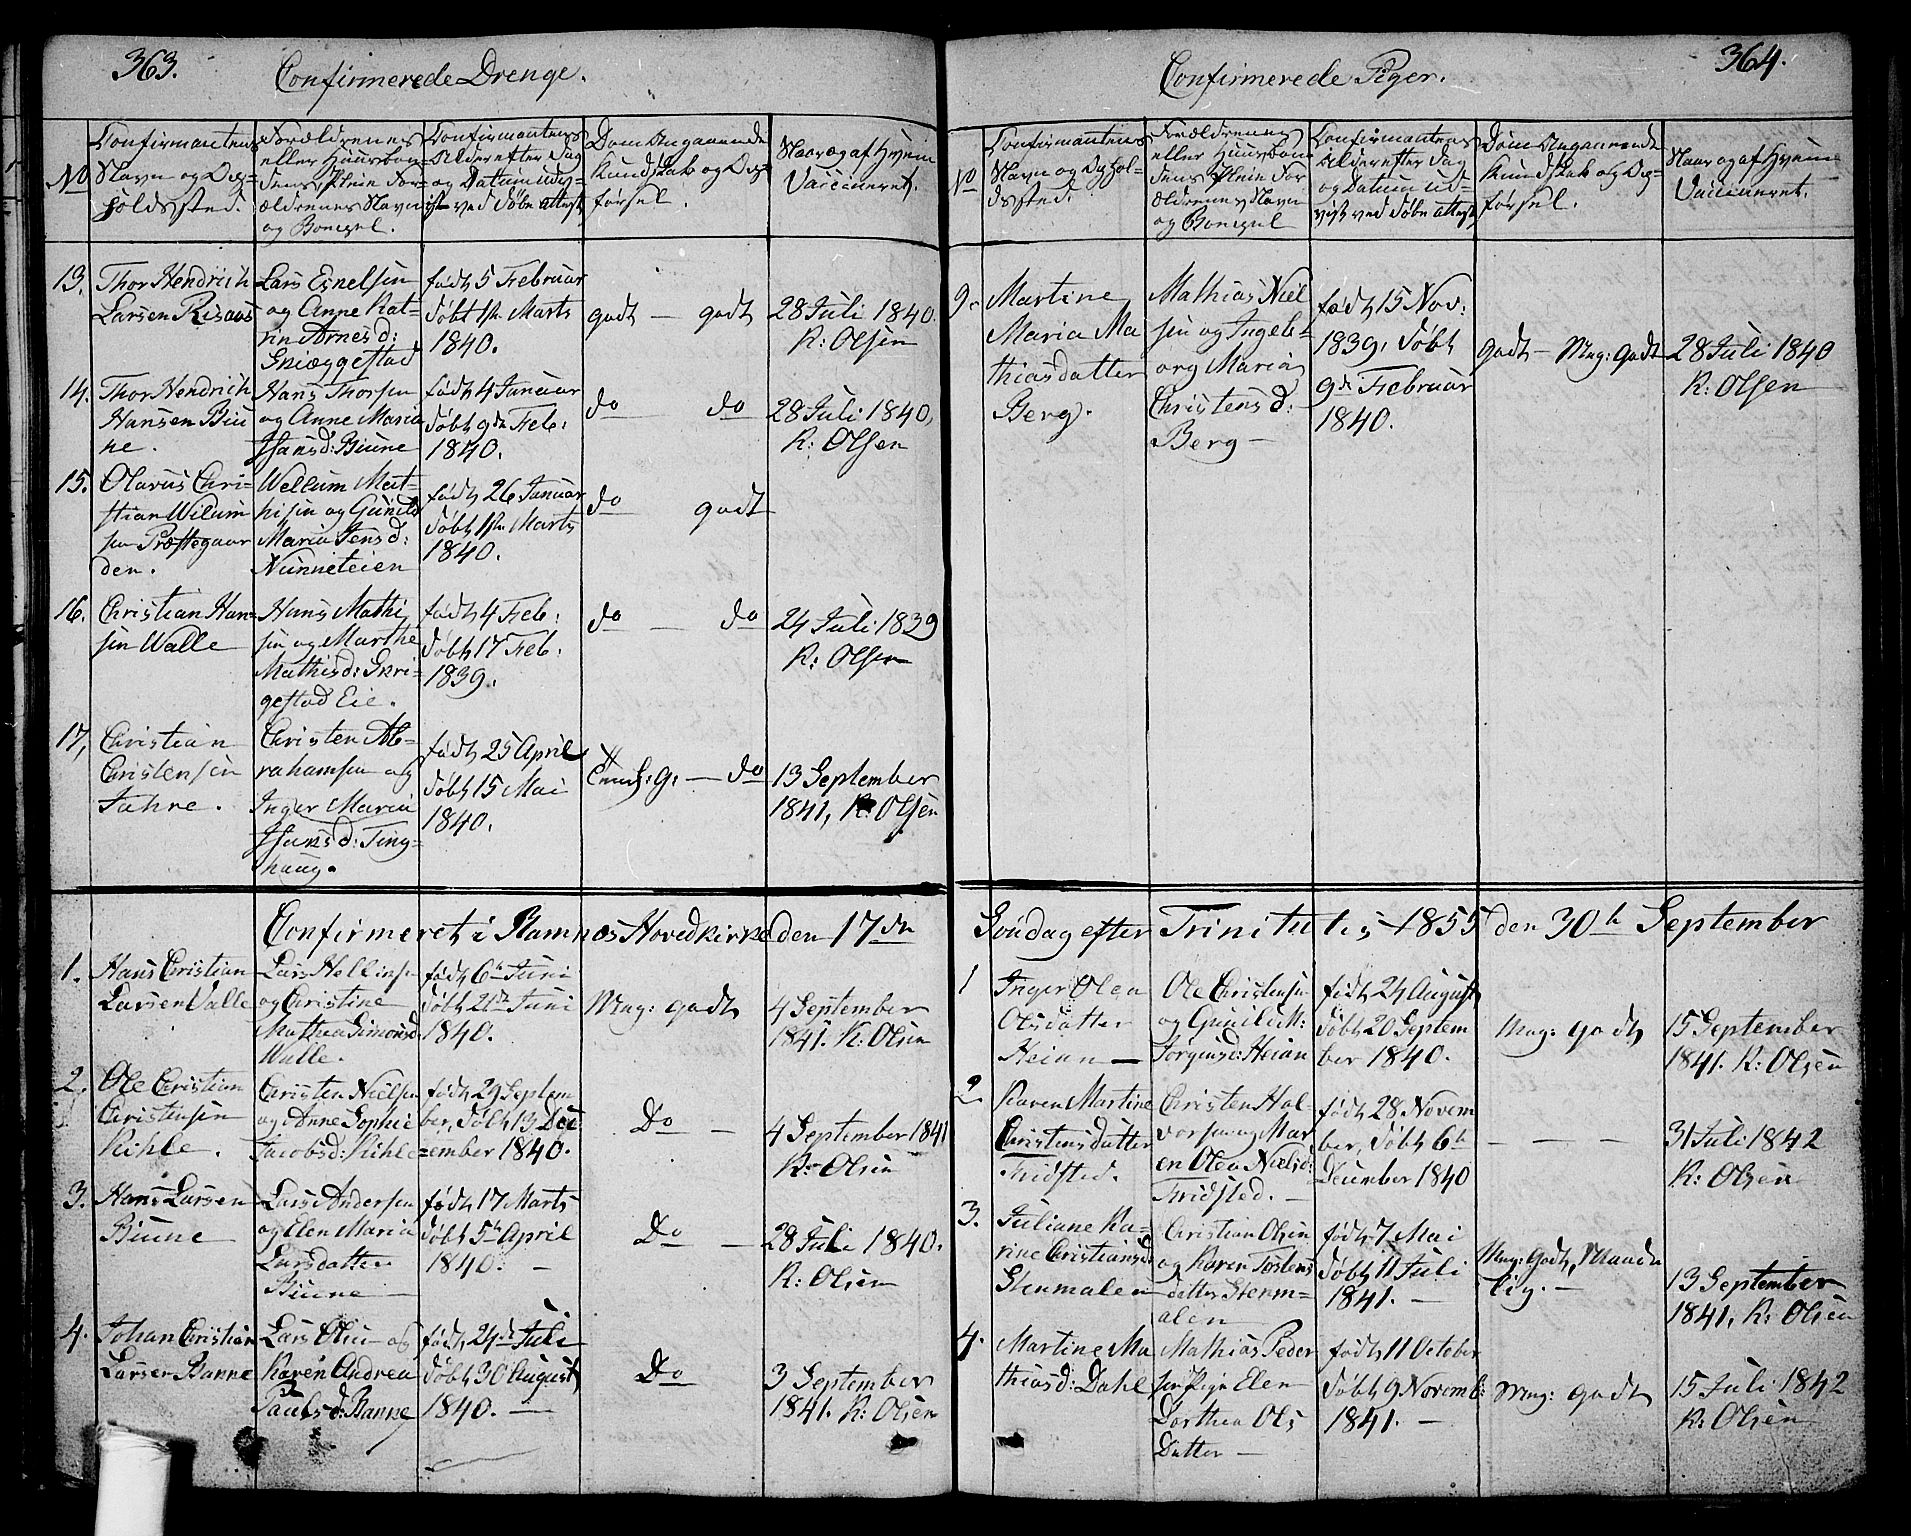 363.
Confirmerede Drenge.
No
Confirmantens
Navn og Op-
holdssted.
Forældrenes
eller Huusbon-
dens, Pleie For-
ældrenes Navn
og Bopæl.
Confirmantens
Alder efter Dag
og Datum udvi-
ist ved Døbe attest
Dom Angaaende
Kundskab og Op-
førsel.
Naar og af Hvem
Vaccineret.
13.
Thor Hendrich
Larsen Risaas
Lars
og Anne Kat-
rin Arnesd:
Skiæggestad
født 5 Februar
døbt 1ste Marts
1840.
godt — godt
28 Juli 1840.
K: Olsen
14.
Thor Hendrich
Hansen Biu
ne.
Hans Thorsen
og Anne Maria
Hansd: Biune
født 4 Januar
døbt 9de Feb:
1840.
do do
28 Juli 1840,
K: Olsen
15.
Olavus Chri-
stian Wilum
sen Præstegaar
den.
Wellum Mat-
hisen og Gunild
Maria Jensd:
Nunneteien
født 26 Januar
døbt 1ste Marts
1840.
do godt
16.
Christian Han-
sen Walle
Hans Mathi
sen og Marthe
Mathisd: Skri-
gestad Eie.
født 4 Feb:
døbt 17 Feb:
1839.
do — do
24 Juli 1839
K: Olsen
17,
Christian
Christensen
Fahre.
Christen Ab-
rahamsen og
Inger Maria
Hansd: Ting-
haug.
født 25 April
døbt 15 Mai
1840.
g: — do
13 September
1841, K: Olsen
Confirmeret i Ramnes Hovedkirke den 17de
1.
Hans Christian
Larsen Valle
Lars Hellesen
og Christine
Mathea Simonsd
Walle.
født 6te Juni
døbt 21de Juni
1840.
Mag: godt
4 September
1841. K: Olsen
2.
Ole Christian
Christensen
Kihle.
Christen Nielsen
og Anne Sophie
Jacobsd: Kihle
født 29 Septem
ber, døbt 13 Dec
ember 1840.
Do —
4 September 1841
K: Olsen
3.
Hans Larsen
Biune
Lars Andersen
og Elen Maria
Larsdatter
Biune
født 17 Marts
døbt 5te April
1840. —
Do —
28 Juli 1840.
K: Olsen
4.
Johan Christian
Larsen Banne
Lars Olsen og
Karen Andrea
Paulsd: Banne
født 24de Juli
døbt 30 August
1840. —
Do
3 September
1841. K: Olsen
364.
Confirmerede Piger.
No
Confirmantens
Navn og Ophol-
dssted.
Forældrenes
eller Huusbon-
dens, Pleie For
ældrenes Navn
og Bopæl
Confirmantens
Alder efter Dag
og Datum ud-
vist ved Døbe attest
Dom Angaaende
Kundskab og Op-
førsel.
Naar og af Hvem
Vaccineret.
9.
Martine
Maria Ma
thiasdatter
Berg.
Mathias Niel
sen og Ingeb-
org Maria
Christensd:
Berg —
født 15 Nov:
1839, døbt
9de Februar
1840.
godt — Mag: godt
28 Juli 1840
K: Olsen
Søndag efter Trinitatis 1855 den 30te September
1
Inger Olea
Olsdatter
Heian —
Ole Christensen
og Gunild M:
Jorgensd: Heian
født 24 August
døbt 20 Septem
ber 1840.
Mag: godt
15 September
1841. K: Olsen
2.
Karen Martine
Christensdatter
Fridsted.
Christen Hal-
vorsen og Mar
en Olea Nielsd:
Fridsted. —
født 28 Novem
ber, døbt 6te
December 1840
— — —
31 Juli 1842
K: Olsen
3.
Juliane Ka-
rine Christiansd
Stenmalen
Christian Olsen
og Karen Tostens
datter Stenm-
alen
født 7 Mai
døbt 11 Juli
1841. —
Mag: godt,
lig. —
13 September
1841, K: Olsen
4.
Martine Ma
thiasd: Dahl
Mathias Peder
sen Elen
Dorthea Ols
Datter —
født 11 October
døbt 9 Novemb:
1841. —
Mag: godt
15 Juli 1842
K: Olsen